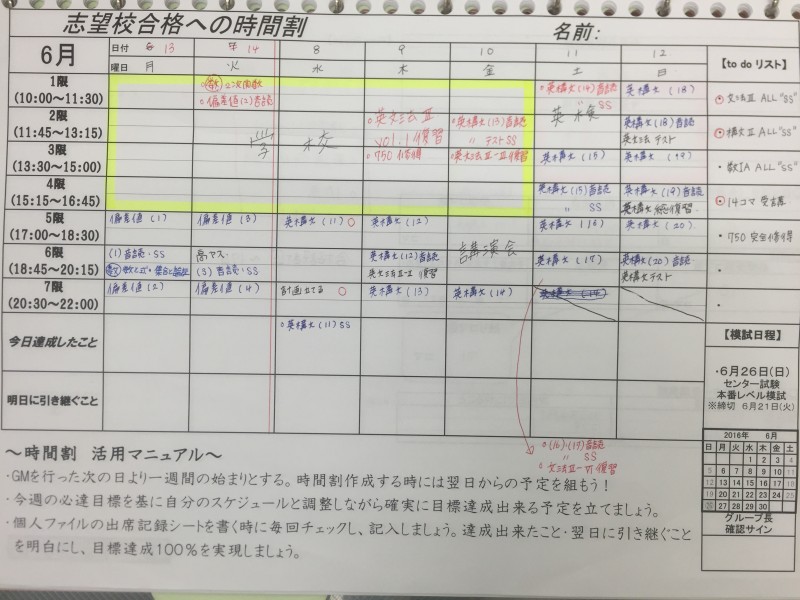 志望校合格への時間割
名前:
6月
日付 6 13 14 8 9 10 11 12
曜日 月 火 水 木 金 土 日
【to do リスト】
1限
(10:00～11:30)
(数)二次関数
○偏差値(2)音読
○英構文(14)音読
〃 SS
英構文(18)
⊙文法Ⅲ ALL "SS"
2限
(11:45～13:15)
学校
○英文法Ⅲ
vol.1 復習
○英構文(13)音読
〃 テストSS
英検
英構文(18)音読
英文法テスト
⊙構文Ⅲ ALL "SS"
3限
(13:30～15:00)
○750 修得
○英文法Ⅲ-Ⅲ復習
英構文(15)
英構文(19)
・数ⅠA ALL "SS"
4限
(15:15～16:45)
英構文(15)音読
〃 SS
英構文(19)音読
英構文 総復習
⊙14コマ 受講
5限
(17:00～18:30)
偏差値(1)
偏差値(3)
英構文(11)○
英構文(12)
英構文(16)
英構文(20)
・750 完全修得
6限
(18:45～20:15)
(1)音読・SS
(数)数と式・集合と論証
高マス
(3)音読・SS
英構文(12)音読
英文法Ⅲ-Ⅱ復習
講演会
英構文(17)
英構文(20)音読
英構文テスト
7限
(20:30～22:00)
偏差値(2)
偏差値(4)
計画立てる ○
英構文(13)
英構文(14)
英構文(14)
今日達成したこと
○英構文(11)SS
【模試日程】
・6月26日(日)
センター試験
本番レベル模試
※締切 6月21日(火)
明日に引き継ぐこと
2016年 6月
日 月 火 水 木 金 土
1 2 3 4
5 6 7 8 9 10 11
12 13 14 15 16 17 18
19 20 21 22 23 24 25
26 27 28 29 30
○(16)・(17)音読
〃 SS
○文法Ⅲ-Ⅵ復習
グループ長
確認サイン
～時間割 活用マニュアル～
・GMを行った次の日より一週間の始まりとする。時間割作成する時には翌日からの予定を組もう！
・今週の必達目標を基に自分のスケジュールと調整しながら確実に目標達成出来る予定を立てましょう。
・個人ファイルの出席記録シートを書く時に毎回チェックし、記入しましょう。達成出来たこと・翌日に引き継ぐこと
を明白にし、目標達成100％を実現しましょう。